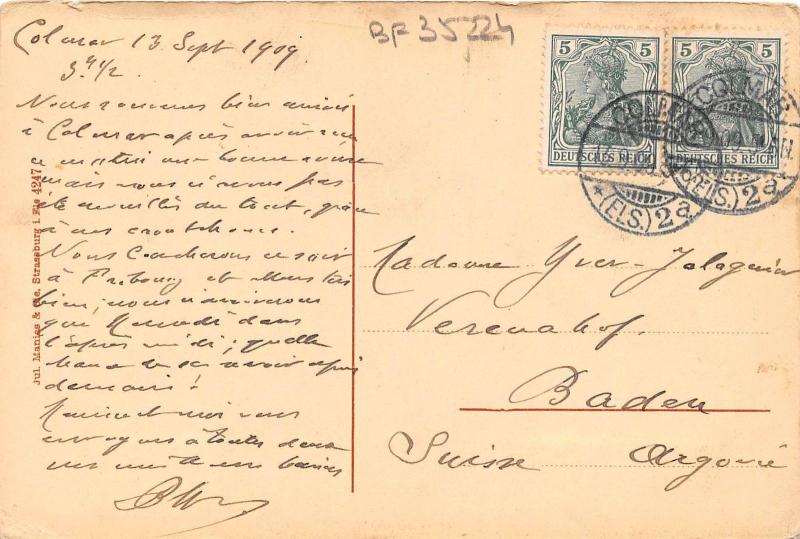 Colmar 13 Sept 1909
3 h 1/2
BF 35224
Nous sommes bien arrivés
à Colmar après avoir reçu
ce matin une bonne averse
mais nous n'avons pas
été mouillés du tout, grâce
à nos caoutchoucs.
Nous coucherons ce soir
à Fribourg et
bien, nous n'arriverons
que Mercredi dans
l'après midi; quelle
de avoir
demain!
et moi vous
envoyons à toutes deux
nos meilleurs baisers
Jul. Manias & Cie, Strassburg i. Els 4247
5 5
DEUTSCHES REICH
5 5
DEUTSCHES REICH
COLMAR
* (ELS.) 2a
COLMAR
(ELS.) 2a
Madame Yver-
Verenahof.
Baden
Suisse Argovie